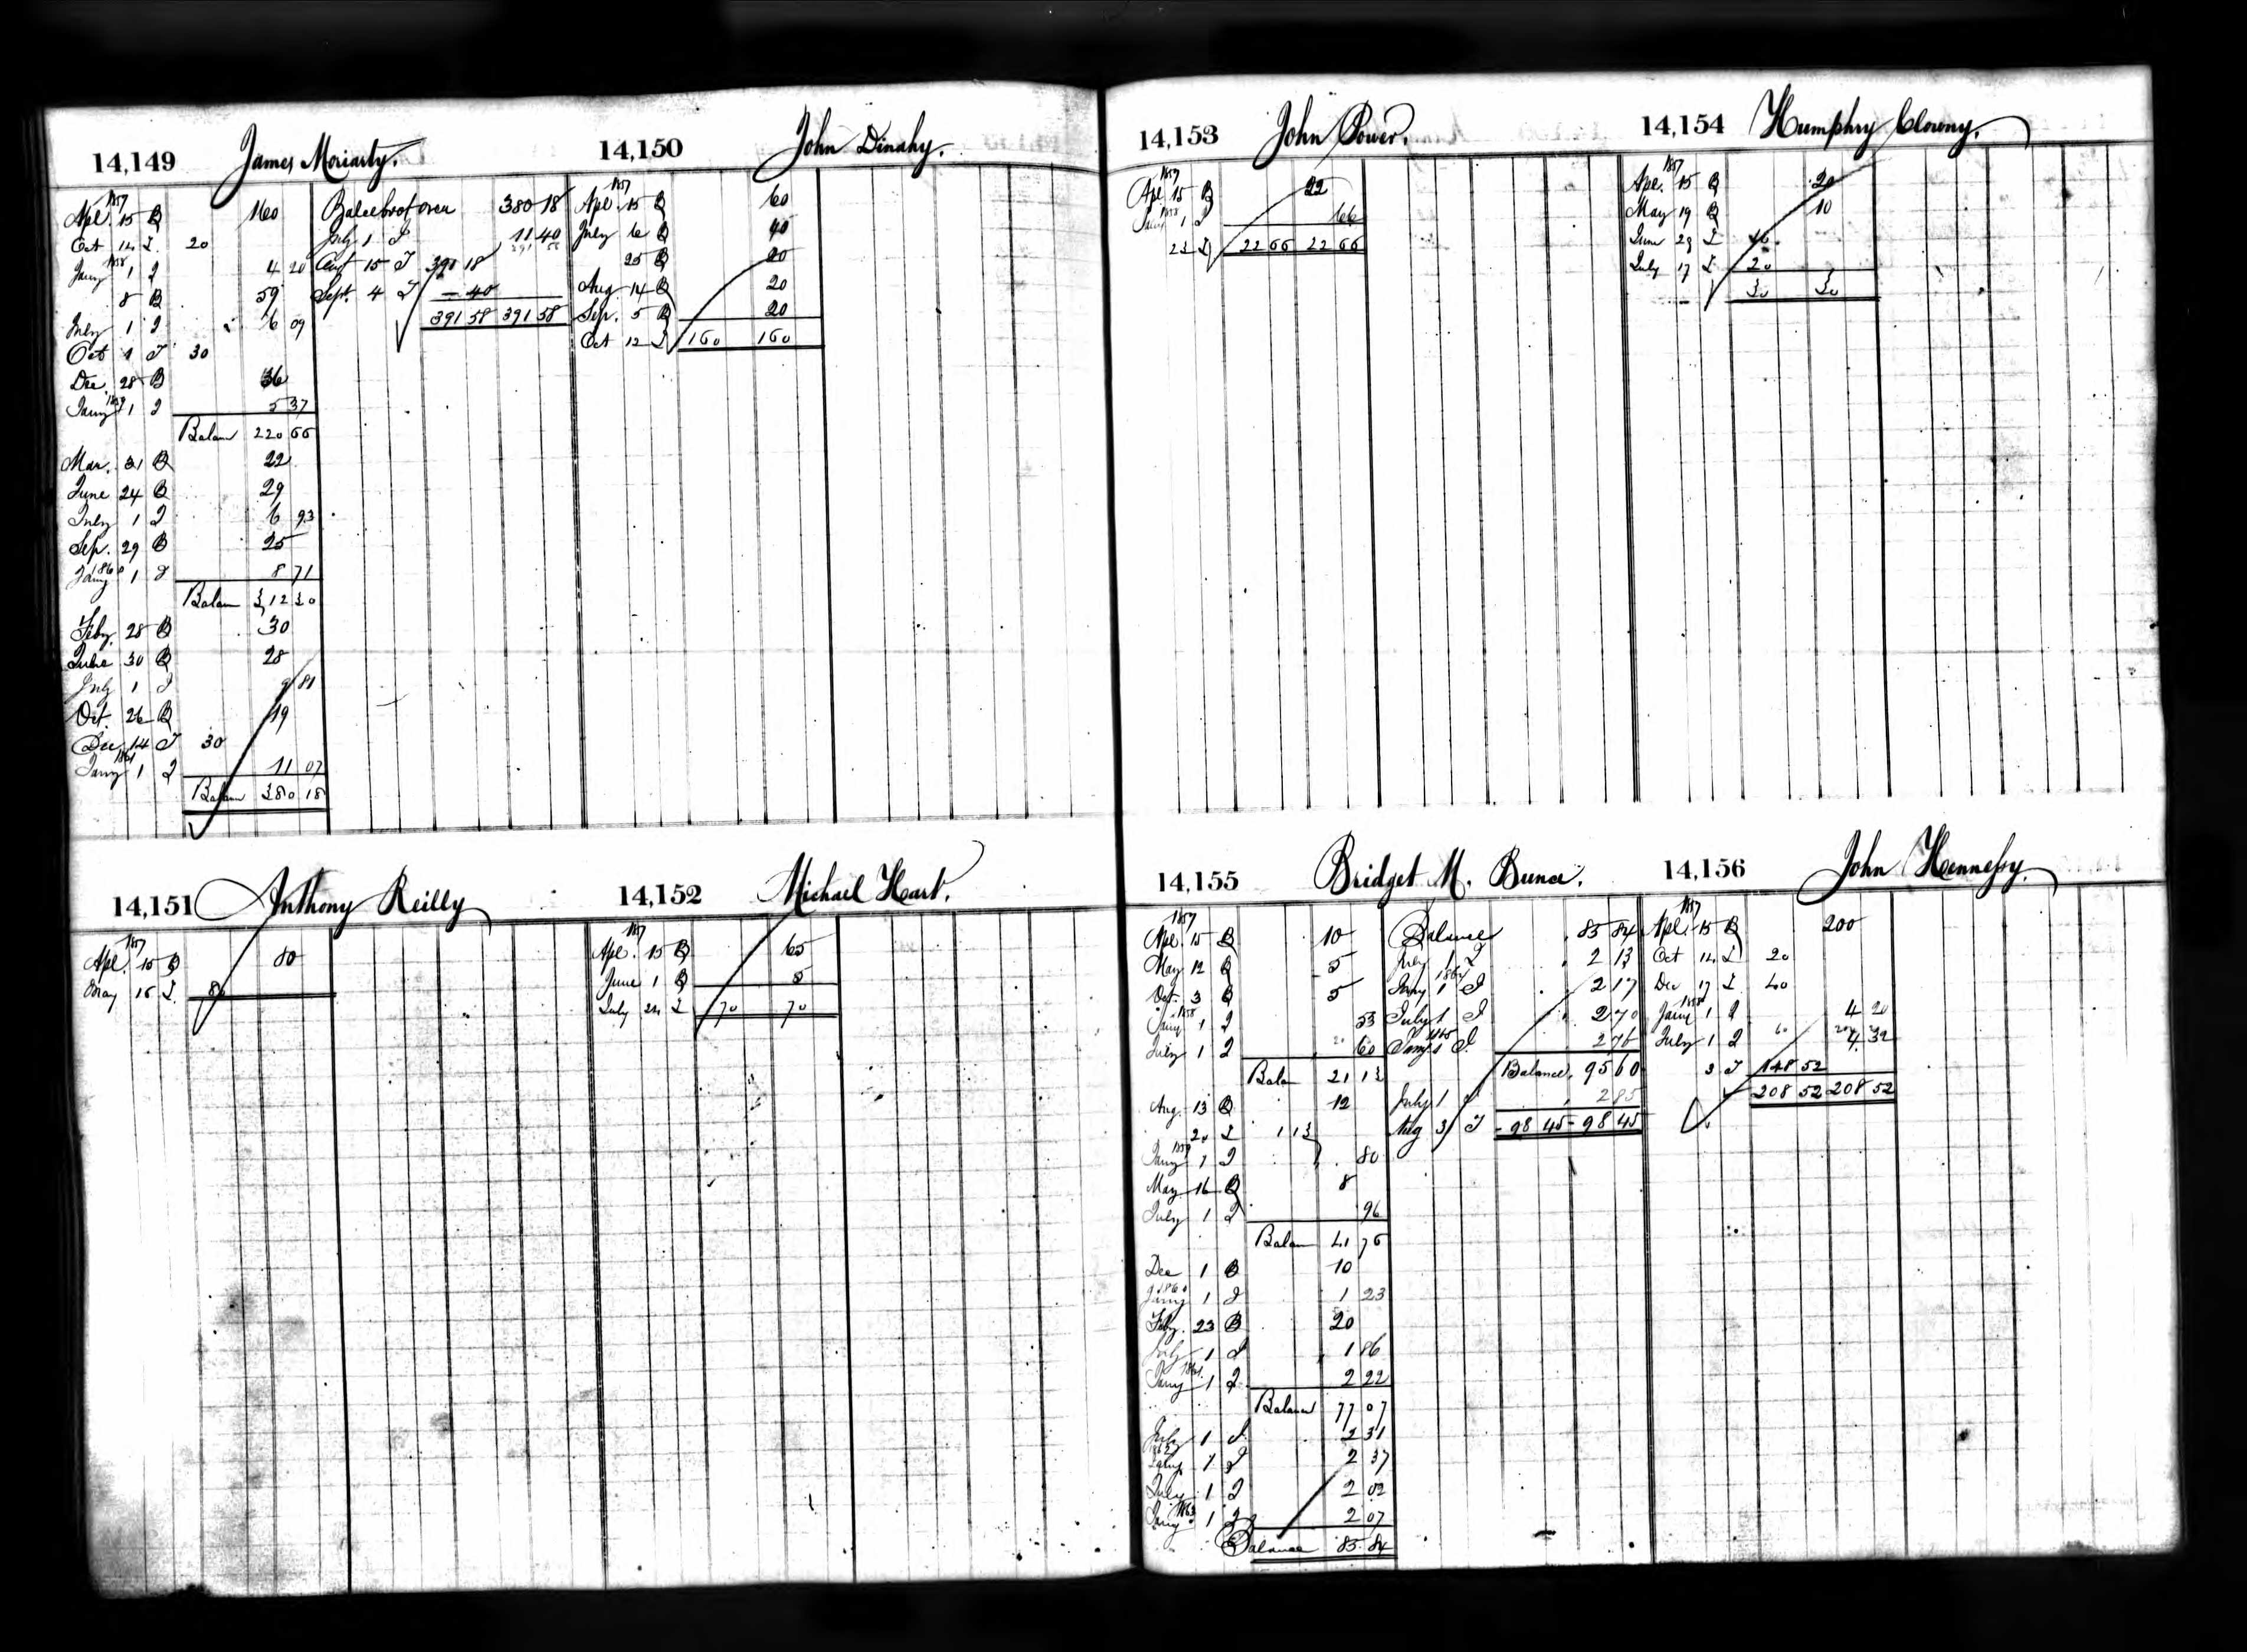 14,149 James Moriarty.
1857
Apl. 15 B 160
Oct 14 I 20
1858
Jany 1 I 4 20
8 B 59
July 1 I 6 09
Oct 1 I 30
Dec 28 B 36
1859
Jany 1 I 5 37
Balan 220 66
Mar. 31 B 22
June 24 B 29
July 1 I 6 93
Sep. 29 B 25
1860
Jany 1 I 8 71
Balan 312 30
Feby. 28 B 30
June 30 B 28
July 1 I 9 81
Oct. 26 B 19
Dec 14 I 30
1861
Jany 1 I 11 07
Balan 380 18
380 18
July 1 I 11 40
Augt 15 I 390 18
Sept. 4 I 1 40
391 58 391 58
14,150 John Dinahy.
1857
Apl. 15 B 60
July 6 B 40
25 B 20
Aug 14 B 20
Sep. 5 B 20
Oct 12 I 160 160
14,151 Anthony Reilly
1857
Apl. 15 B 80
May 16 I 80
14,152 Michael Hart.
1857
Apl. 15 B 65
June 1 B 5
July 24 I 70 70
14,153 John Power.
1857
Apl 15 B 22
1858
Jany 1 I 66
22 I 22 66 22 66
14,154 Humphry Clowny.
1857
Apl. 15 B 20
May 19 B 10
June 29 I 10
July 17 I 20
30 30
14,155 Bridget M. Bunce.
1857
Apl. 15 B 10
May 12 B 5
Oct 3 B 5
1858
Jany 1 I 53
July 1 I 60
Balan 21 13
Aug. 13 B 12
20 I 1 13
1859
Jany 1 I 80
May 16 B 8
July 1 I 96
Balan 41 76
Dec 1 B 10
1860
Jany 1 I 1 23
Feby. 23 B 20
July 1 I 1 86
1861
Jany 1 I 2 22
Balance 77 07
July 1 I 2 31
1862
Jany 1 I 2 37
July 1 I 2 02
1863
Jany 1 I 2 07
Balance 85 84
Balance 85 84
July 1 I 2 13
1864
Jany 1 I 2 17
July 1 I 2 70
1865
Jany 1 I 2 76
Balance, 95 60
July 1 I 2 85
Aug 3 I 98 45 98 45
14,156 John Hennessy.
1857
Apl. 15 B 200
Oct 14 I 20
Dec 17 I 40
1858
Jany 1 I 4 20
July 1 I 4 32
3 I 148 52
208 52 208 52